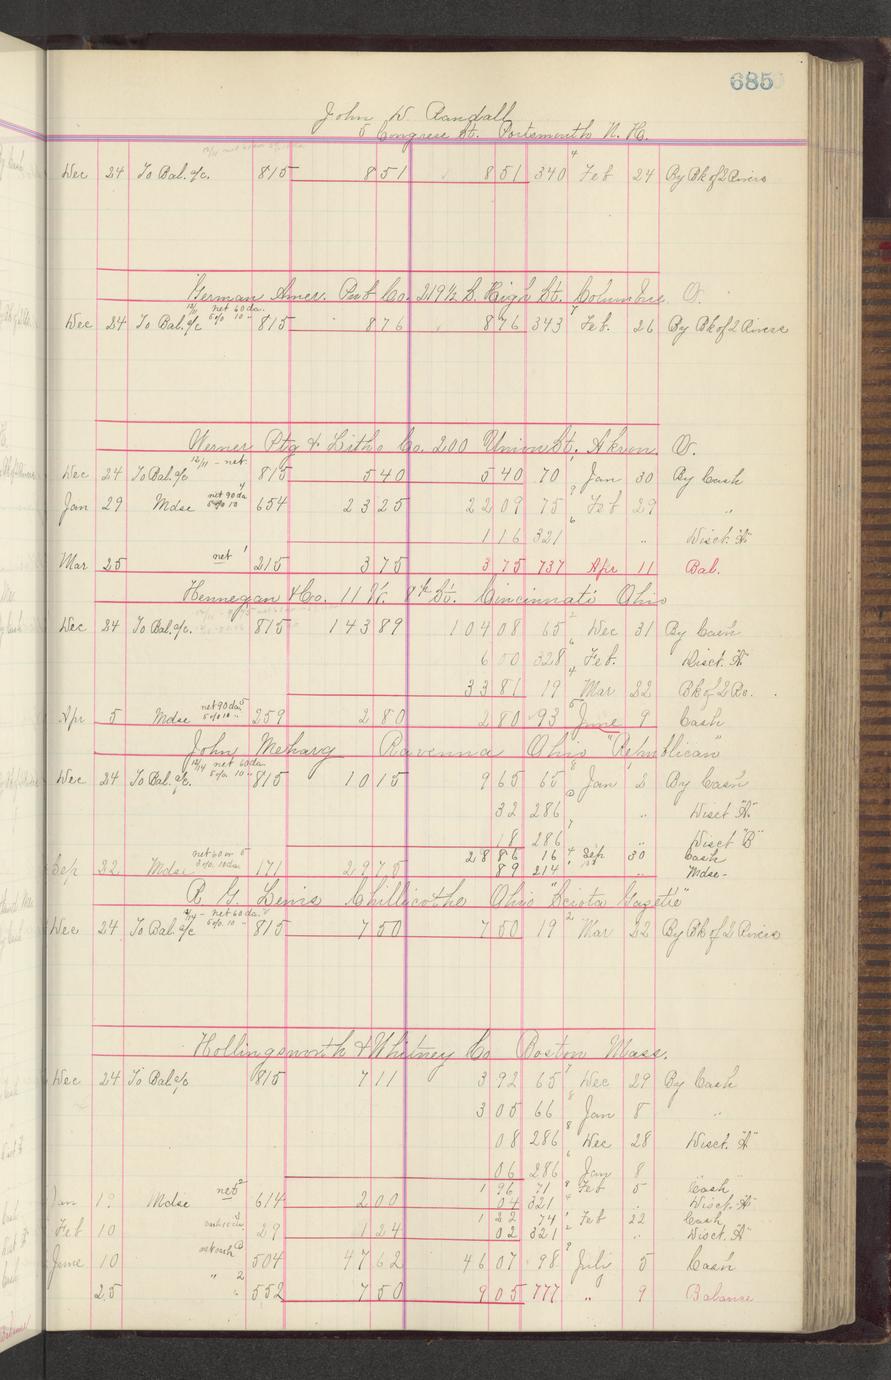 685
John W. Randall
5 Congress St. Portsmouth N. H.
Dec 24 To Bal. a/c. 815 851 851 340 4 Feb 24 By Bk of 2 Rivers
German Amer. Pub Co. 219 1/2 S. High St. Columbus. O.
12/11 net 60 da.
5 0/0 10 "
Dec 24 To Bal. a/c 815 876 876 343 7 Feb. 26 By Bk of 2 Rivers
Werner Ptg & Litho Co. 200 Union St. Akron. O.
12/11 - net
Dec 24 To Bal. a/c 815 540 540 70 1 Jan 30 By Cash
Jan 29 Mdse net 90 da 5 0/0 10 654 2325 2209 75 9 Feb 29 "
116 321 6 " Disct. "A"
Mar 25 net 1 215 375 375 737 Apr 11 Bal.
Hennegan & Co. 11 W. 8th St. Cincinnati Ohio
Dec 24 To Bal. a/c. 815 14389 10408 65 Dec 31 By Cash
600 328 6 Feb. Disct. "A"
3381 19 4 Mar 22 Bk of 2 Ro.
Apr 5 Mdse net 90 da 5 0/0 10 " 259 280 280 93 5 June 9 Cash
John Meharg Ravenna Ohio "Republican"
12/14 net 60 da.
5 0/0. 10 "
Dec 24 To Bal. a/c. 815 1015 965 65 8 Jan 2 By Cash
32 286 " Disct "A"
18 286 7 " Disct "B"
2886 16 4 Sep 30 Cash
Sep 22 Mdse net 60 or 5 3 0/0. 10 da. 171 2975 89 214 " " Mdse -
R G. Lewis Chillicothe Ohio "Sciota Gazette"
net 60 da.
5 0/0. 10 "
Dec 24 To Bal. a/c 815 750 750 19 2 Mar 22 By Bk of 2 Rivers
Hollingsworth & Whitney Co Boston Mass.
Dec 24 To Bal a/c 815 711 392 65 7 Dec 29 By Cash
305 66 8 Jan 8 "
08 286 8 Dec 28 Disct. "A"
06 286 6 Jan 8 "
196 71 8 Feb 5 Cash
Jan Mdse net 2 614 200 04 321 4 " Disct. "A"
122 74 Feb 22 Cash
Feb 10 29 124 02 321 2 " Disct. "A"
June 10 net cash 504 4762 4607 98 9 July 5 Cash
25 " 2 552 750 905 777 " 9 Balance